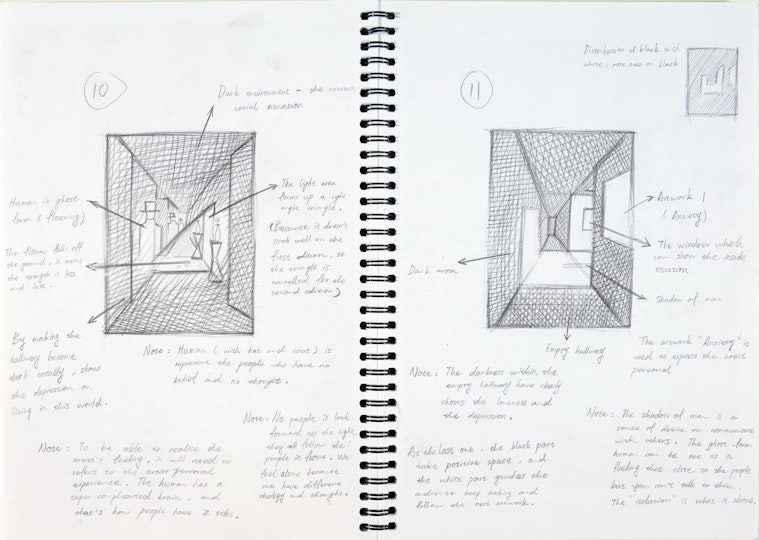 10
Dark environment - the current
social situation
Human in ghost
form (fleeing)
The light area
forms up a right
angle triangle.
(Because it doesn't
look well on the
first edition, so
the triangle is
cancelled for the
second edition)
The flower falls off
the ground, it means
the strength is less
and less.
By making the
hallway become
dark totally, shows
the depression on
living in this world.
Note: Human (with hat and coat) is
represent the people who have no
belief and no thought.
Note: No people is look
forward to the light,
they all follow the
people in focus. We
feel alone because
we have different
ideology and thoughts.
Note: To be able to realise the
artist's feeling, it will need to
refers to the artist personal
experience. The human has a
super complicated brain, and
that's how people have 2 sides.
11
Distribution of black and
white: more area on black
Artwork 1
(Anxiety)
The window which
can show the inside
situation
Dark area
Shadow of man
Empty hallway
The artwork "Anxiety" is
used to express the artist
personal
Note: The darkness within the
empty hallway have clearly
shows the loneness and
the depression.
Note: The shadow of man is a
sense of desire on communicate
with others. The ghost-form
human can be see as a
feeling that close to the people
but you can't talk to them.
The "isolation" is what it shows.
As the last one, the black part
take positive space, and
the white part guides the
audience keep looking and
follow the next artwork.